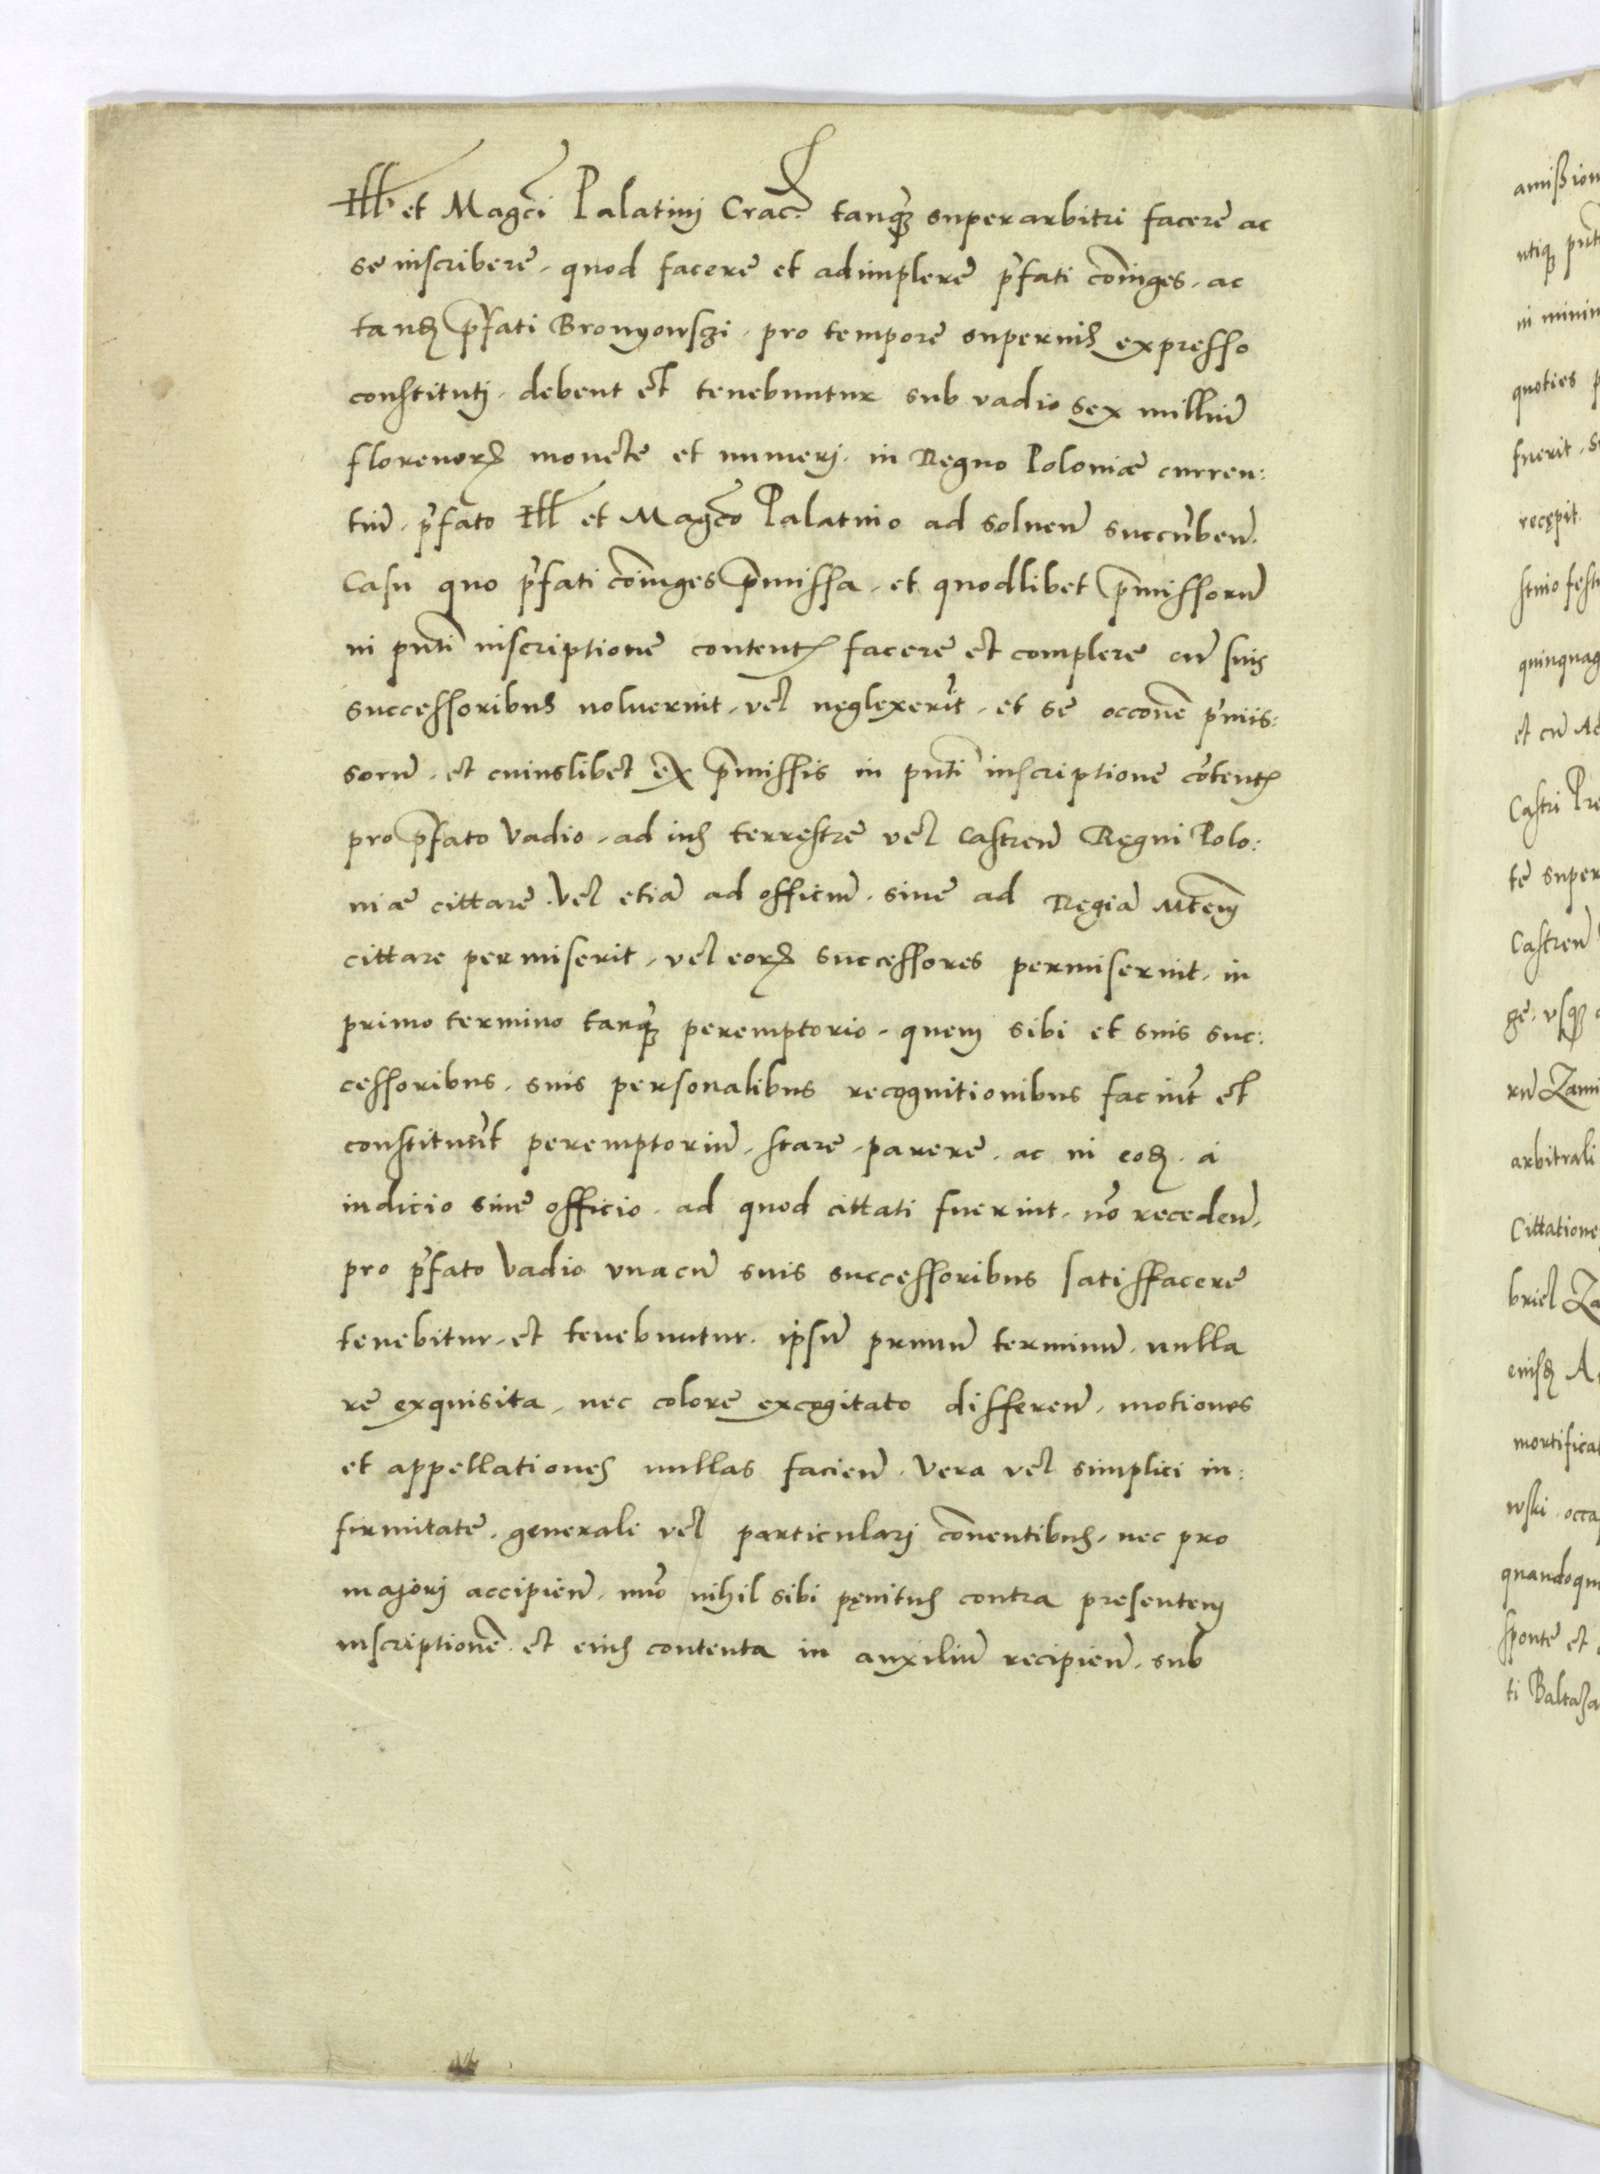 Ill et Magci Palatini Crac. tanq̃ superarbitri facere ac
se inscribere, quod facere et adimplere p̃fati cõiuges, ac
tandẽ p̃fati Bronyowszi, pro tempore superius expresso
constituti, debent et tenebuntur sub vadio sex milliũ
florenorꝝ monete et numeri in Regno Poloniæ curren:
tiũ, p̃fato Ill et Magco Palatino ad soluen̄ succũben̄.
Casu quo p̃fati cõiuges p̃missa, et quodlibet p̃missorũ
in pñti inscriptione content̨ facere et complere cũ suis
successoribus noluerint, vel neglexerĩt, et se occone p̃mis:
sorũ, et cuiuslibet ex p̃missis in pñti inscriptione cõtent̨
pro p̃fato vadio, ad ius terrestre vel Castren̄ Regni Polo:
niæ cittare, vel etiã ad officiũ, siue ad Regiã Mtem
cittare permiserit, vel eorꝝ successores permiserint, in
primo termino tanq̃ peremptorio, quem sibi et suis suc:
cessoribus, suis personalibus recognitionibus faciũt et
constituũt peremptoriũ, stare, parere, ac in eodẽ, a
iudicio siue officio, ad quod cittati fuerint, nõ receden̄,
pro p̃fato vadio vnacũ suis successoribus satisffacere
tenebitur, et tenebuntur, ipsũ primũ terminũ, nulla
re exquisita, nec colore excogitato differen̄, motiones
et appellationes nullas facien̄, vera vel simplici in:
firmitate, generali vel particulari conuentibus, nec pro
majori accipien̄, imo nihil sibi penitus contra presentem
inscriptionẽ et eius contenta in auxiliũ recipien̄, sub
amission
utiq̃ pñt
in minim
quoties p
fuerit, s
recepit.
stino fest
quinquag
et cũ Ad
Castri Pre
te super
Castren̄
ge, vsq̃
rũ Zami
arbitrali
Cittatione
briel Za
eiusd̃ A
mortificat
wski, occa
quandoqui
sponte et
ti Baltaza